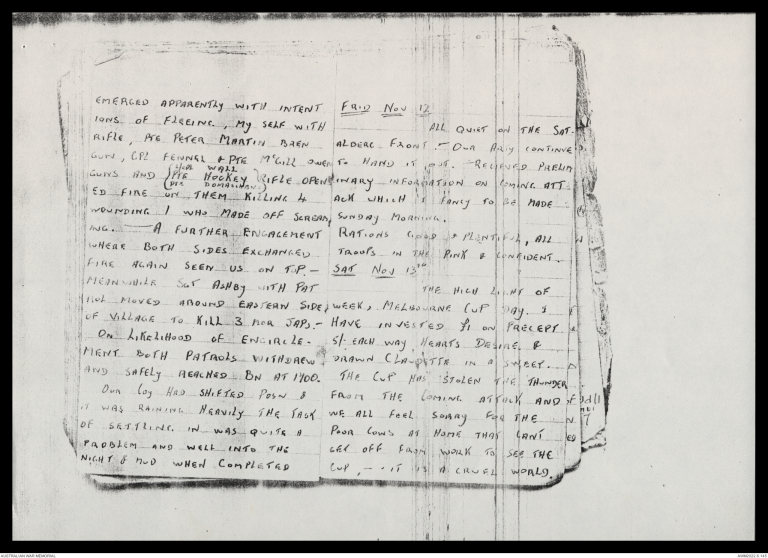 EMERGED APPARENTLY WITH INTENT
IONS OF FLEEING, MY SELF WITH
RIFLE, PTE PETER MARTIN BREN
GUN, CPL FENNEL & PTE McGILL OWEN
GUNS AND PTE HOCKEY RIFLE OPEN
WALL
PTE
ED FIRE ON THEM KILLING 4
WOUNDING 1 WHO MADE OFF SCREAM
ING. — A FURTHER ENGAGEMENT
WHERE BOTH SIDES EXCHANGED
FIRE AGAIN SEEN US ON TOP. —
MEANWHILE SGT ASHBY WITH PAT
MOVED AROUND EASTERN SIDE
OF VILLAGE TO KILL 3 MOR JAPS. —
ON LIKELIHOOD OF ENCIRCLE-
MENT BOTH PATROLS WITHDREW
AND SAFELY REACHED BN AT 1700.
OUR COY HAD SHIFTED POSN &
IT WAS RAINING HEAVILY THE TASK
OF SETTLING IN WAS QUITE A
PROBLEM AND WELL INTO THE
NIGHT & MUD WHEN COMPLETED
FRID NOV 12
ALL QUIET ON THE SAT-
ALBERG FRONT — OUR ARTY CONTINUE
TO HAND IT OUT. — RECIEVED PRELIM
INARY INFORMATION ON COMING ATT-
ACK WHICH I FANCY TO BE MADE
SUNDAY MORNING.
RATIONS GOOD & PLENTIFUL, ALL
TROOPS IN THE PINK & CONFIDENT.
SAT NOV 13TH
THE HIGH LIGHT OF
WEEK, MELBOURNE CUP DAY. I
HAVE INVESTED £1 ON PRECEPT
5/- EACH WAY HEARTS DESIRE. &
DRAWN CLAUDETTE IN A SWEEP.
THE CUP HAS STOLEN THE THUNDER
FROM THE COMING ATTACK AND
WE ALL FEEL SORRY FOR THE
POOR COWS AT HOME THAT CANT
GET OFF FROM WORK TO SEE THE
CUP, — IT IS A CRUEL WORLD.
AUSTRALIAN WAR MEMORIAL